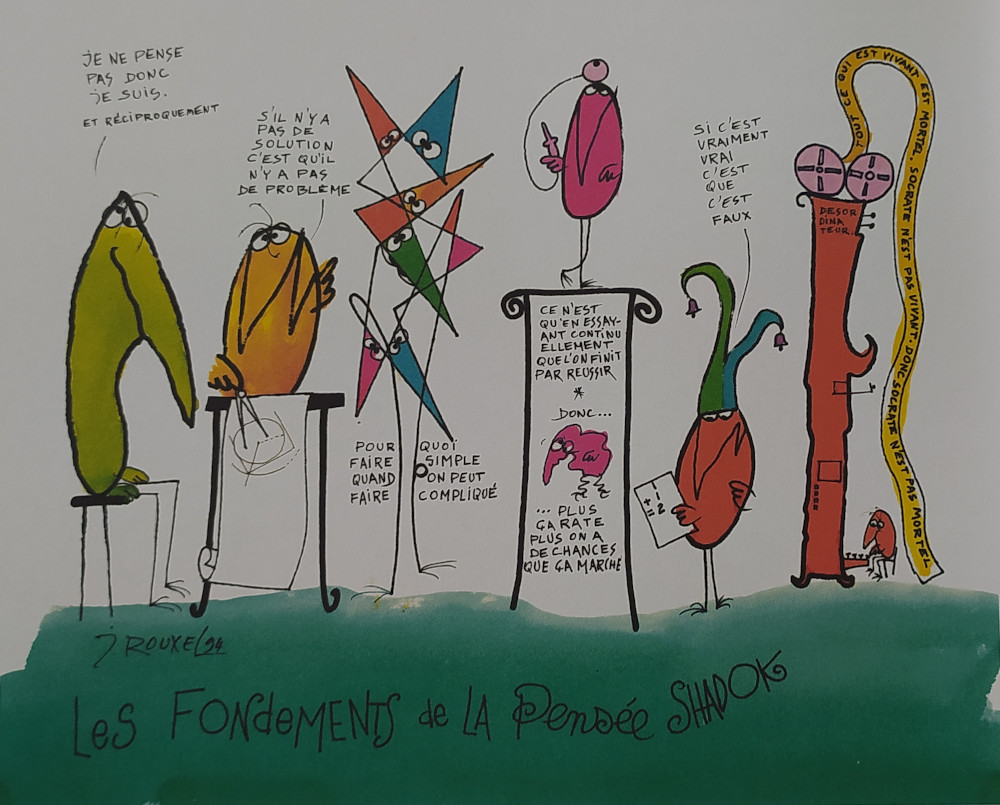 JE NE PENSE
PAS DONC
JE SUIS.
ET RÉCIPROQUEMENT
S'IL N'Y A
PAS DE
SOLUTION
C'EST QU'IL
N'Y A PAS
DE PROBLÈME
POUR QUOI
FAIRE SIMPLE
QUAND ON PEUT
FAIRE COMPLIQUÉ
CE N'EST
QU'EN ESSAY-
ANT CONTINU
ELLEMENT
QUE L'ON FINIT
PAR REUSSIR
*
DONC...
... PLUS
ÇA RATE
PLUS ON A
DE CHANCES
QUE ÇA MARCHE
SI C'EST
VRAIMENT
VRAI
C'EST
QUE
C'EST
FAUX
DESOR
DINA
TEUR
TOUT CE QUI EST VIVANT EST MORTEL. SOCRATE N'EST PAS VIVANT. DONC SOCRATE N'EST PAS MORTEL
J ROUXEL 94
Les FONDEMENTS de LA Pensée SHADOK